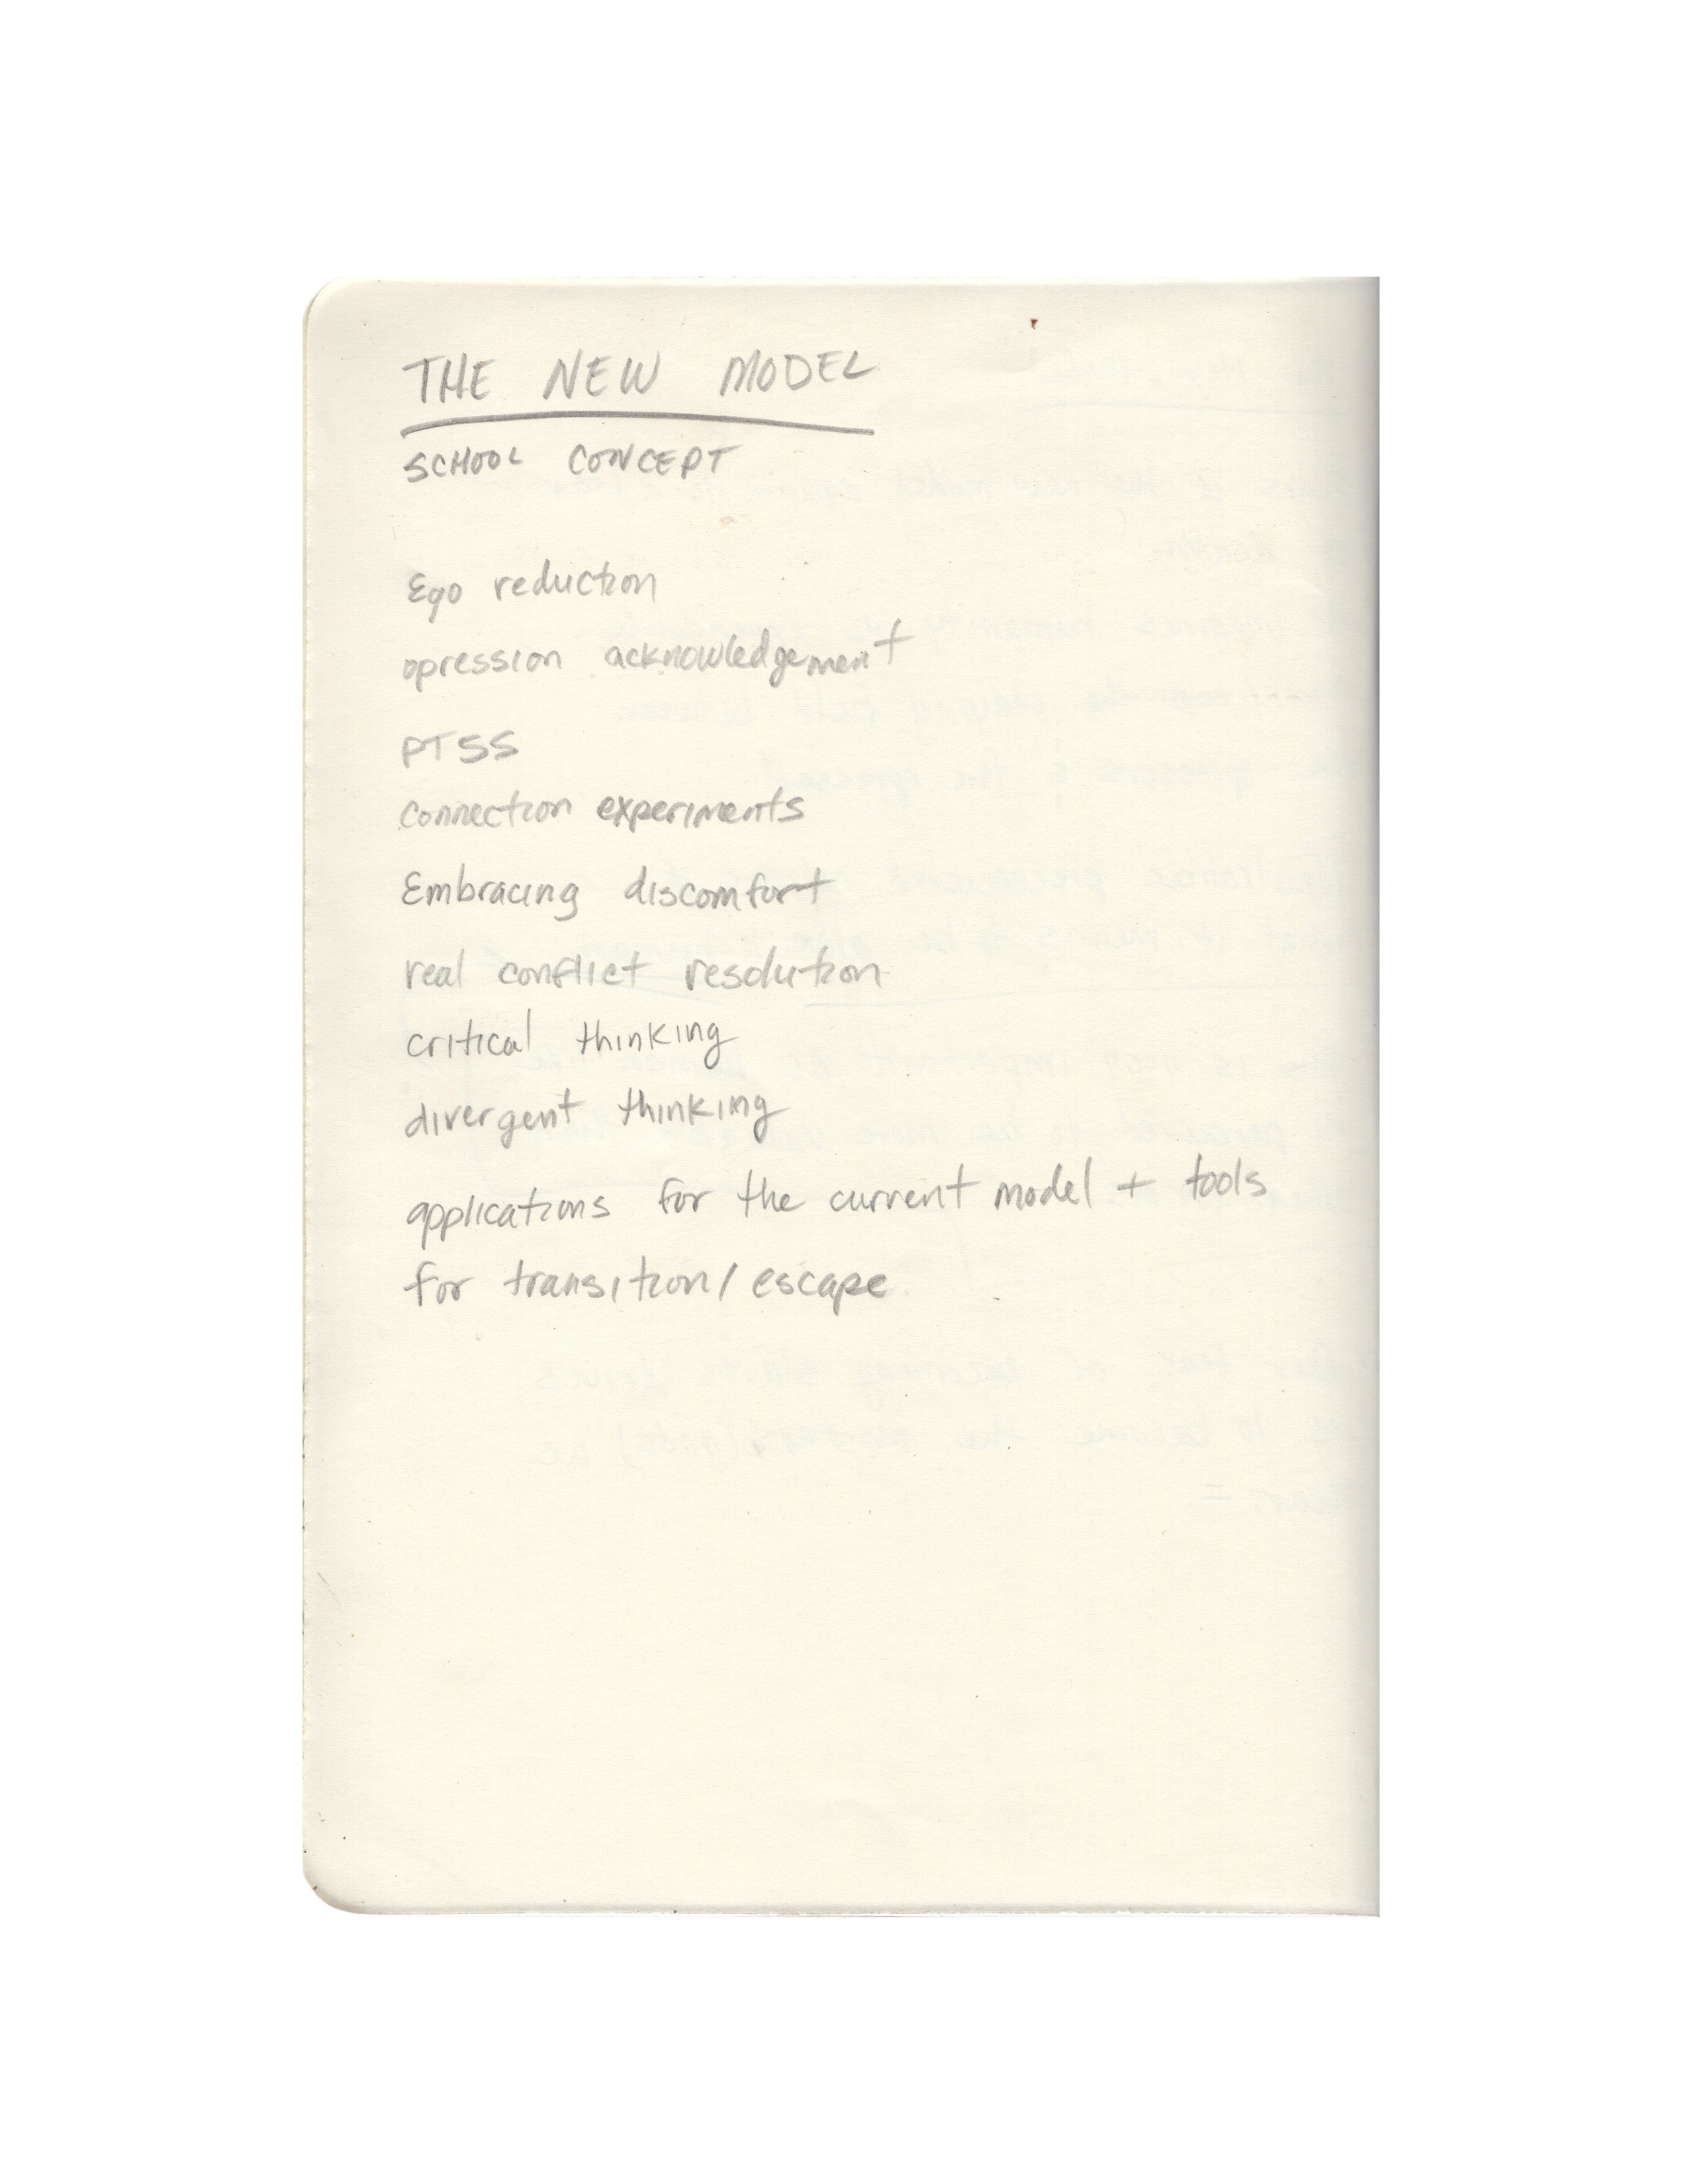 THE NEW MODEL
SCHOOL CONCEPT
Ego reduction
opression acknowledgement
PTSS
Connection experiments
Embracing discomfort
real conflict resolution
critical thinking
divergent thinking
applications for the current model + tools
for transition/escape